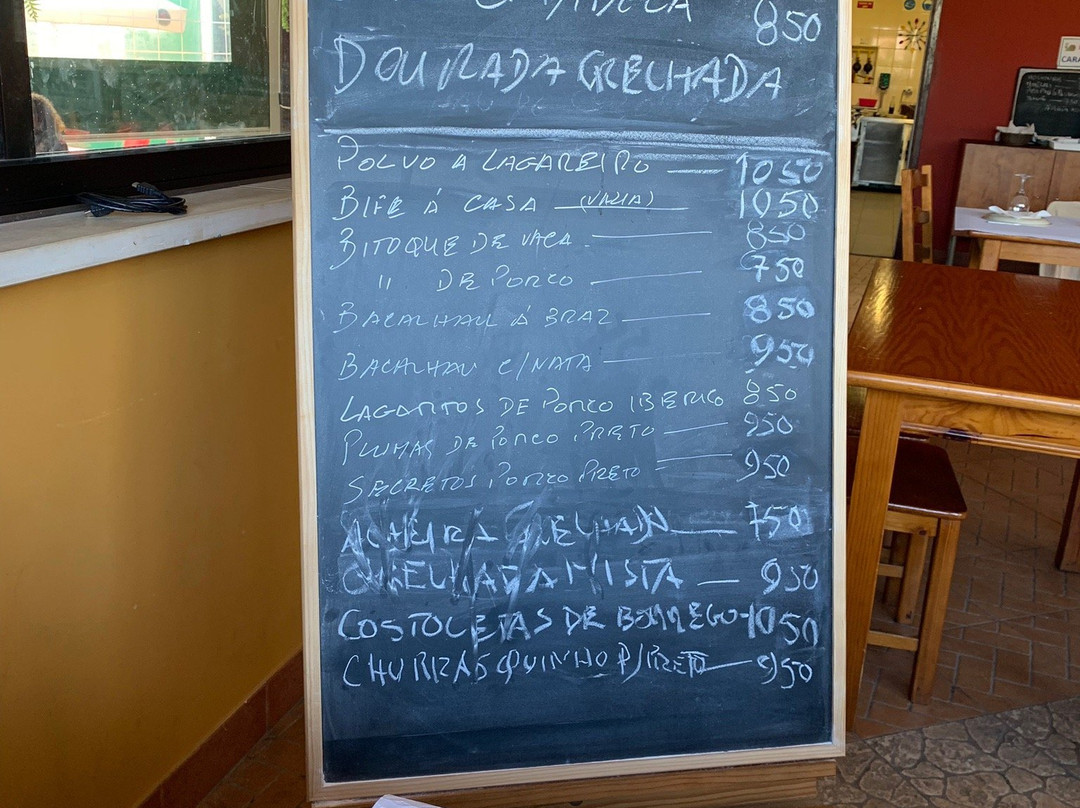 850
DOURADA GRELHADA
POLVO A LAGAREIRO — 1050
BIFE Á CASA (VAZIA) 1050
BITOQUE DE VACA — 850
" DE PORCO — 750
BACALHAU Á BRAZ — 850
BACALHAU C/NATA — 950
LAGARTOS DE PORCO IBERICO 850
PLUMAS DE PORCO PRETO — 950
SECRETOS PORCO PRETO — 950
— 750
GRELHADA MISTA — 950
COSTOLETAS DE BORREGO - 1050
CHURRASQUINHO P/PRETO — 950
CARA